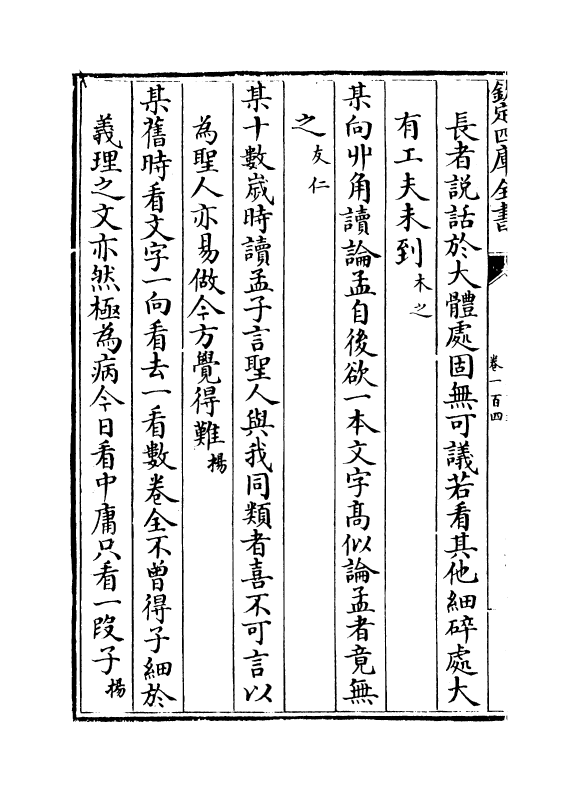 欽定四庫全書
卷一百四
長者説話於大體處固無可議若看其他細碎處大
有工夫未到木之
某向丱角讀論孟自後欲一本文字髙似論孟者竟無
之友仁
某十數嵗時讀孟子言聖人與我同類者喜不可言以
為聖人亦易做今方覺得難揚
某舊時看文字一向看去一看數卷全不曽得子細於
義理之文亦然極為病今日看中庸只看一段子揚